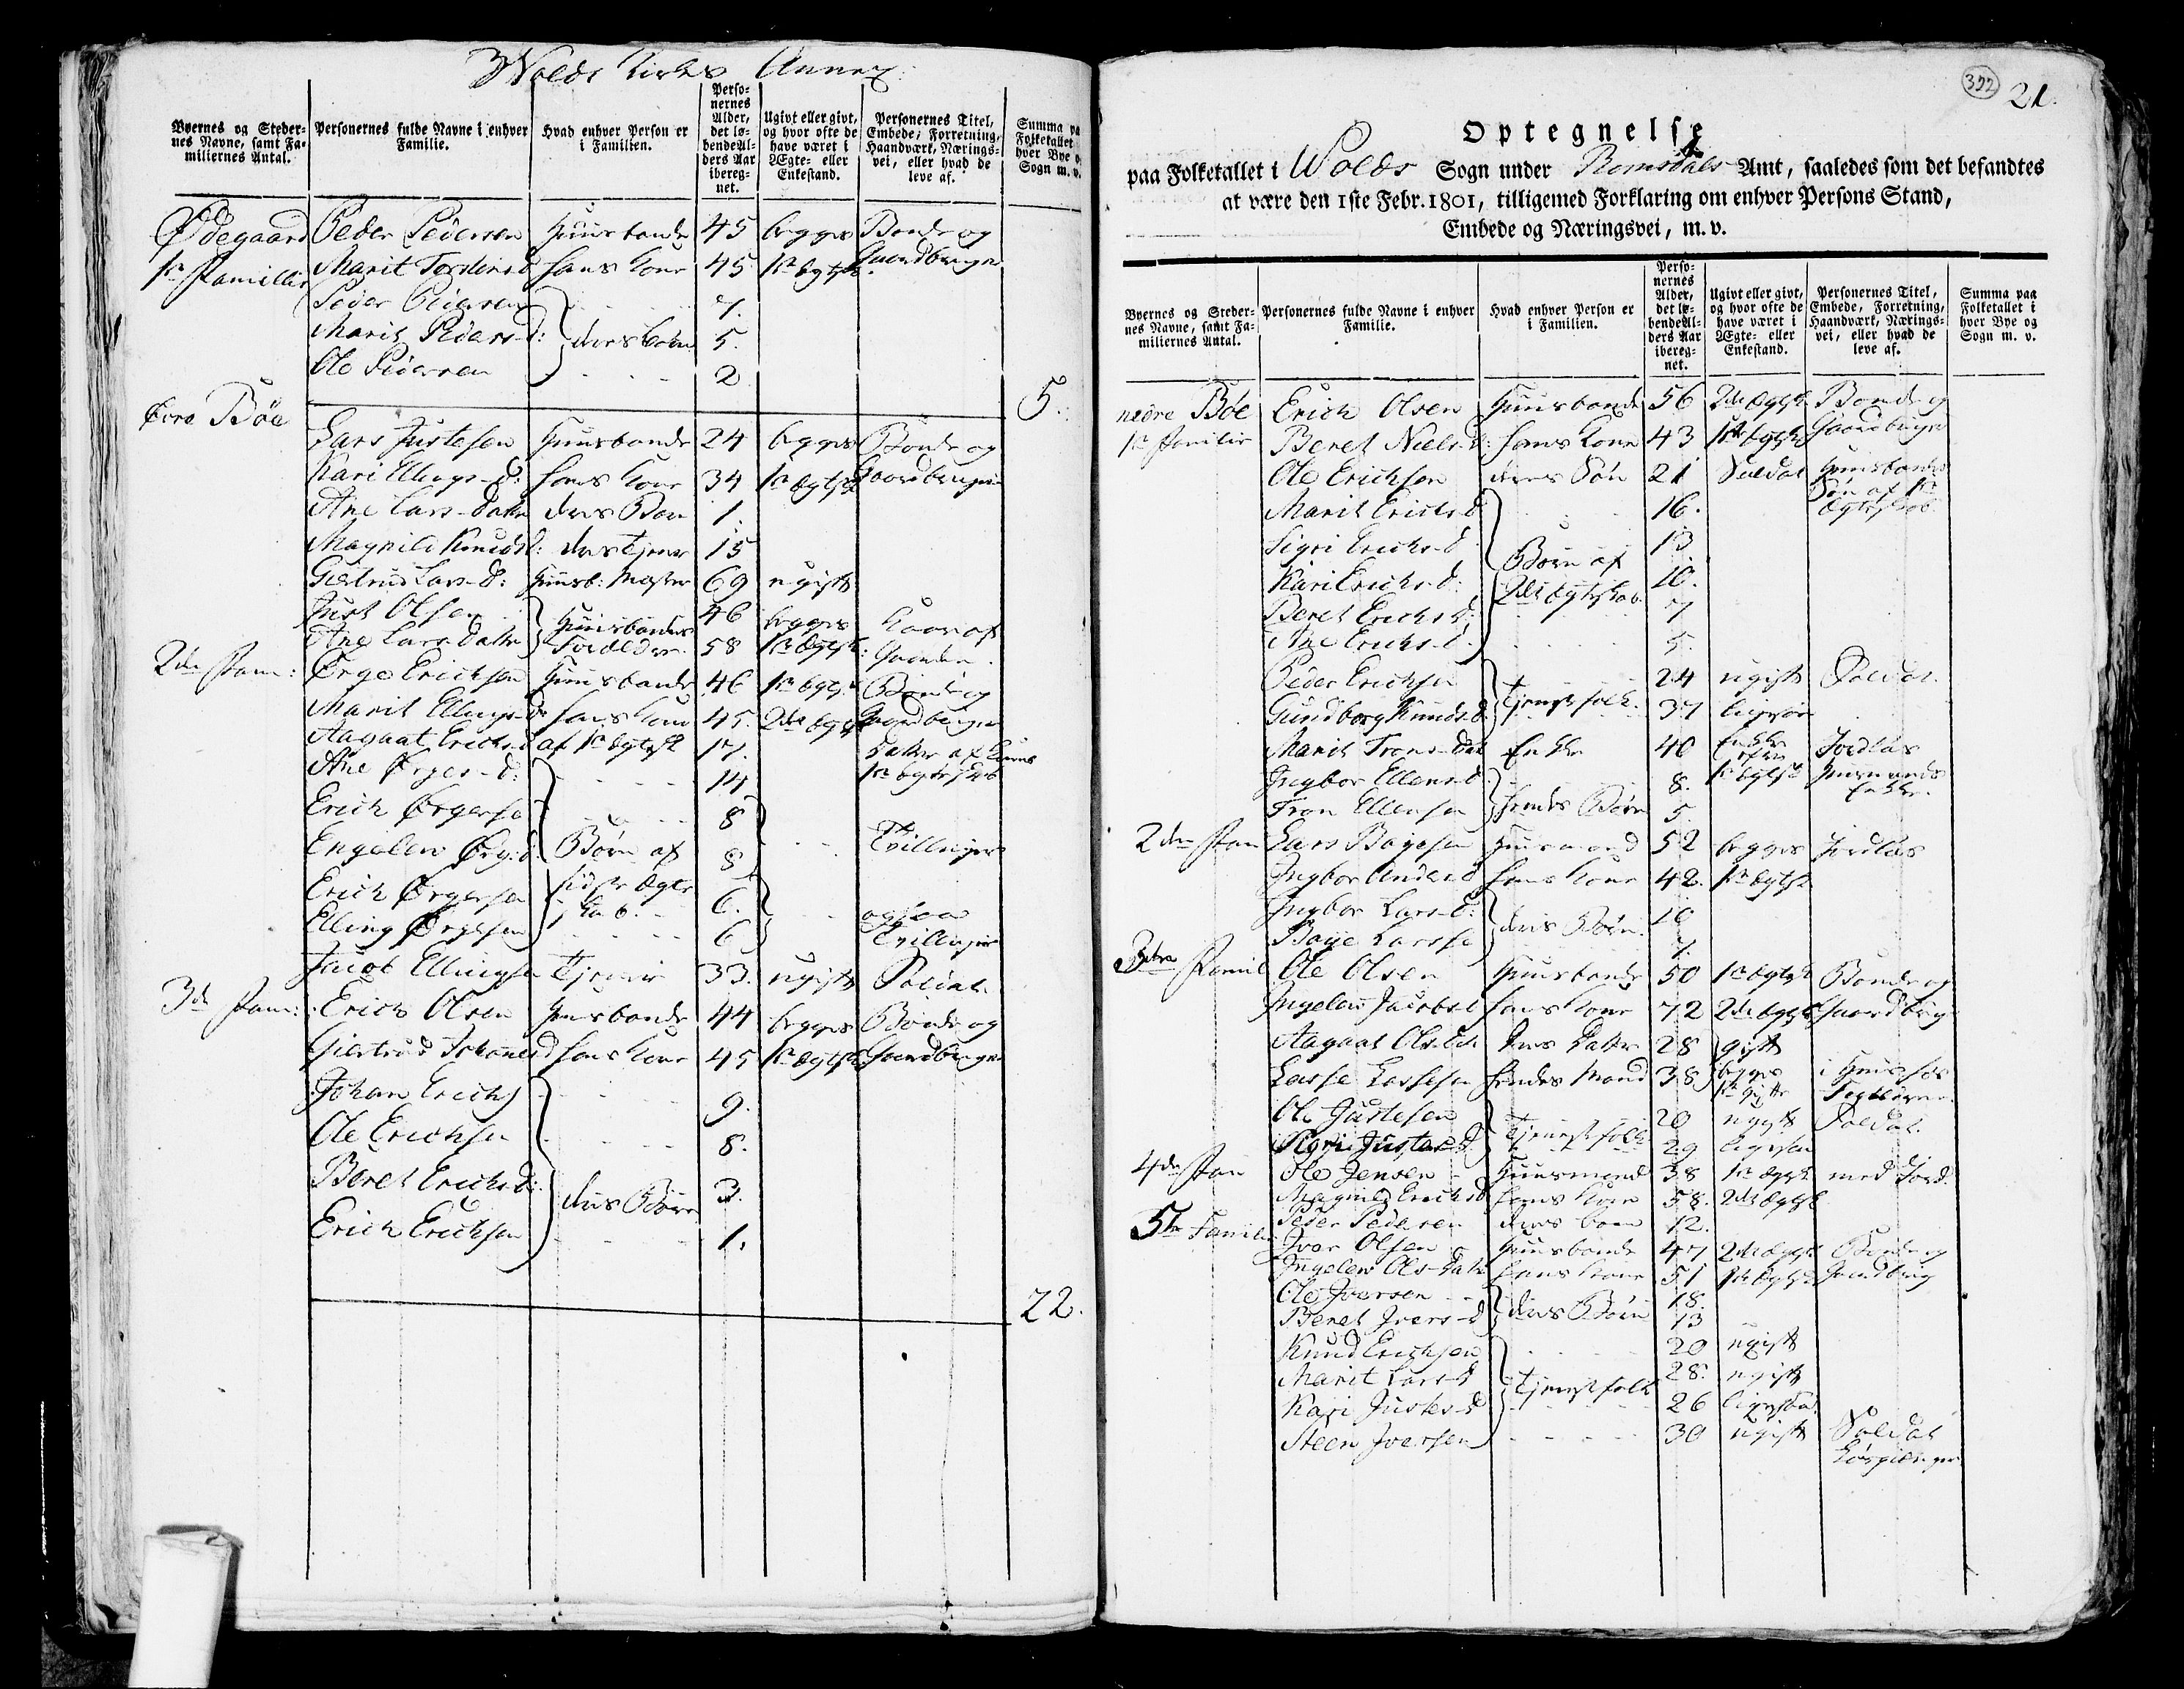 Wolds Kirkes Annex:
Byernes og Steder-nes Navne, samt Fa-miliernes Antal.
Personernes fulde Navne i enhver Familie.
Hvad enhver Person er i Familien.
Perso-nernes Alder, det lø-bende Al-ders Aar ibereg-net.
Ugivt eller givt, og hvor ofte de have været i Ægte- eller Enkestand.
Personernes Titel, Embede, Forretning, Haandværk, Nærings-vei, eller hvad de leve af.
Summa paa Folketallet hver Bye o Sogn m. v.
Ødegaard Peder Pedersen Huusbonde 45 begges Bonde og
1te Familie Marit Torstens d hans Kone 45 1te Ægtesk Gaardbruger
Peder Pedersen 7.
Marit Peders d: deres børn 5.
Ole Pedersen 2
5.
Øvre Bøe
Lars Justesen Huusbonde 24 begges Bonde og
Kari Ellings d: hans Kone 34 1te Ægtesk Gaardbruger
Ane Lars Datter deres Barn 1.
Magnild Knuds d: deres tjener 15
Giertrud Lars d: Huusb: Moster 69 ugivt
Just Olsen Huusbondes 46 begges Kaar af
Ane Lars Datter Forældre 58 1te Ægtesk: Gaarden.
2den Fam: Ørge Erichsen Huusbonde 46 1te Ægt. Bonde og
Marit Ellings d hans Kone 45. 2det Ægt Gaardbruger
Aagaat Erichs d af 1te Ægtesk 17. Datter af Kones
Ane Ørges d: 14 1te Ægteskab
Erich Ørgesen 8
Engelen Ørg: d. Børn af 8 Tvillinger
Erich Ørgesen sidste Ægte 6. ogsaa
Elling Ørgesen skab. 6 Tvillinger
Jacob Ellingsen Tjener 33. ugivt Soldat
3de Fam: Erich Olsen Huusbonde 44 begges Bonde og
Giertrud Johannes d hans Kone 45 1te Ægtesk Gaardbruger
Johan Erichs 9.
Ole Erichsen 8.
Beret Erichs d: deres Børn 3.
Erich Erichsen 1.
22.
322
21.
Optegnelse
paa Folketallet i Wolds Sogn under Romsdals Amt, saaledes som det befandtes
at være den 1ste Febr. 1801, tilligemed Forklaring om enhver Persons Stand,
Embede og Næringsvei, m. v.
Byernes og Steder-nes Navne, samt Fa-miliernes Antal.
Personernes fulde Navne i enhver Familie.
Hvad enhver Person er i Familien.
Perso-nernes Alder, det lø-bende Al-ders Aar ibereg-net.
Ugivt eller givt, og hvor ofte de have været i Ægte- eller Enkestand.
Personernes Titel, Embede, Forretning, Haandværk, Nærings-vei, eller hvad de leve af.
Summa paa Folketallet i hver Bye og Sogn m. v.
nedre Bøe Erich Olsen Huusbonde 56 2det Ægtsk Bonde og
1te Familie Beret Niels d: hans Kone 43 1te Ægtsk Gaardbruger
Ole Erichsen deres Søn 21 Soldat Huusbondes
Søn af 1te
Marit Erichs d 16. Ægteskab
Sigri Erichs d 13
Kari Erichs d: Børn af 10.
Beret Erichs d: 2det Ægteskab 7
Ane Erichs d. 5.
Peder Erichsen 24 ugivt Soldat
Gundborg Knuds d. tjenestfolk. 37 ligesaa
Marit Trons Dat Enke 40 Enke efter Jordløs
Ingbor Ellens d 8. 1te Ægtesk Huusmands
Tron Ellensen hendes Børn 5. Enke.
2den Fam Lars Bøyesen Huusmand 52 begges Jordløs
Ingbor Anders d hans Kone 42. 1te Ægtsk
Ingbor Lars d: 10
Bøye Larsse deres Børn. 7.
3die Famil Ole Olsen Huusbonde 50 1te Ægtsk Bonde og
Ingelen Jacobs d hans Kone 72 2det Ægtsk Gaardbrug
Aagaat Ols dat deres Datter 28 givt
Lasse Lassesen hendes Mand 38 begges i Huus hos
1te Gifte
Ole Justesen 20 ugivt Soldat
Sigri Justes d tjenestfolk 29 ligesaa
4de Fam Ole Jensen Huusmand 38 1te Ægtsk med Jord.
Magnild Erichs d hans Kone 58. 2det Ægtsk
Peder Pedersen deres barn 12.
5te Familie Iver Olsen Huusbonde 47 2det Ægtsk Bonde og
Ingelen Ols Dat hans Kone 51 1te Ægtsk Gaardbrug
Ole Iversen 18.
Beret Ivers d deres Børn 13
Knud Erichsen 20 ugivt
Marit Lars d 28. ugivt
Kari Justes d tjenestfolk 26 ligesaa
Steen Iversen 30 ugivt Soldat